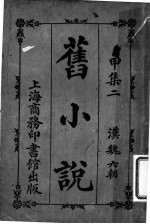 甲集二　漢魏六朝
舊小說
上海商務印書館出版